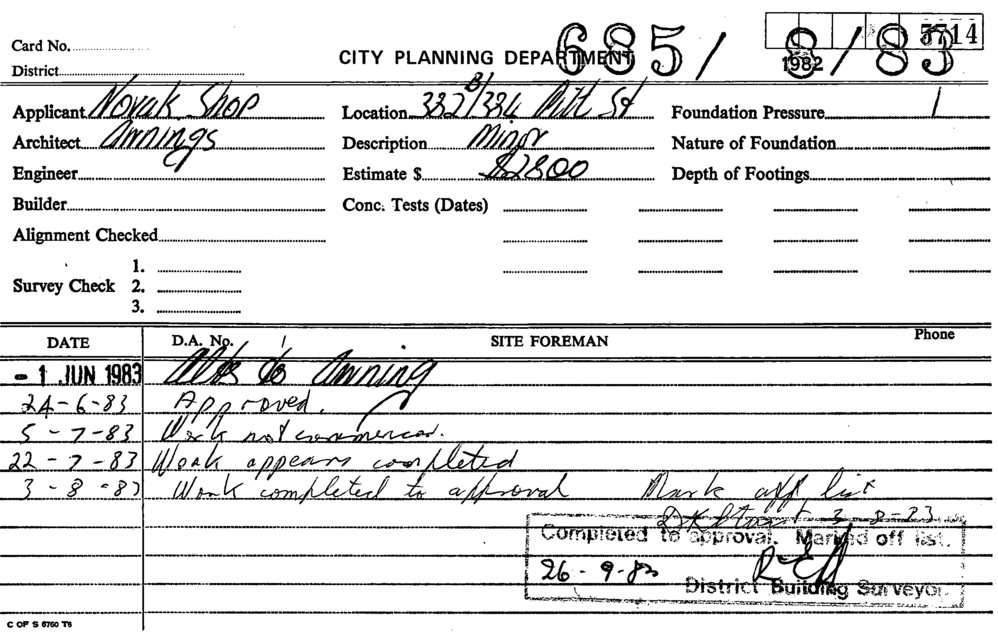 Card No. 5714
CITY PLANNING DEPARTMENT 685/8/83
District 1982
Applicant Novak Shop Location 332 B/334 Pitt St Foundation Pressure
Architect Awnings Description Minor Nature of Foundation
Engineer Estimate $ $2800 Depth of Footings
Builder Conc. Tests (Dates)
Alignment Checked
1.
Survey Check 2.
3.
DATE D.A. No. SITE FOREMAN Phone
- 1 JUN 1983 Alts to Awning
24-6-83 Approved.
5-7-83 Work not commenced.
22-7-83 Work appears completed
3-8-83 Work completed to approval Mark off list
3-8-83
Completed to approval. Marked off list.
26-9-83 District Building Surveyor.
C OF S 6760 T6